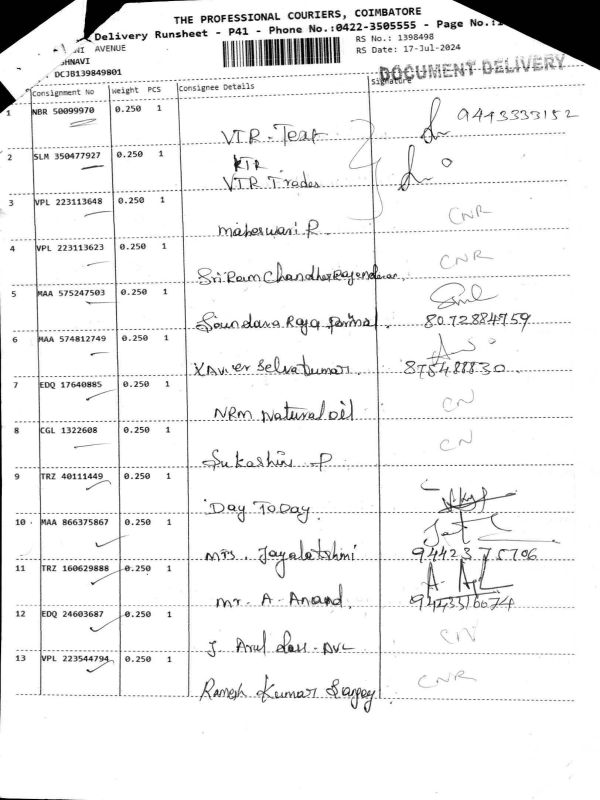 THE PROFESSIONAL COURIERS, COIMBATORE
Delivery Runsheet - P41 - Phone No.:0422-3505555 - Page No.:
AVENUE RS No.: 1398498
SHNAVI RS Date: 17-Jul-2024
DCJB139849801 DOCUMENT DELIVERY
Consignment No Weight PCS Consignee Details Signature
1 NBR 50099970 0.250 1
VTR - Teat 9443333152
2 SLM 350477927 0.250 1 KTR
VTR Trades
3 VPL 223113648 0.250 1 CNR
Maheswari R
4 VPL 223113623 0.250 1 CNR
Sri Ram Chandher Rajendaran
5 MAA 575247503 0.250 1
Soundara Raja Perimal 8072884759
6 MAA 574812749 0.250 1
Xavier Selvakumar 875488830
7 EDQ 17640885 0.250 1 CN
NRM Natural oil
8 CGL 1322608 0.250 1 CN
Sukashini P
9 TRZ 40111449 0.250 1
Day To Day
10 MAA 866375867 0.250 1
Mrs. Jayalatshmi 9442375706
11 TRZ 160629888 0.250 1
Mr. A. Anand 9443316674
12 EDQ 24603687 0.250 1 CN
J. Arul dass - AVL
13 VPL 223544794 0.250 1 CNR
Ramesh Kumar Sanjay